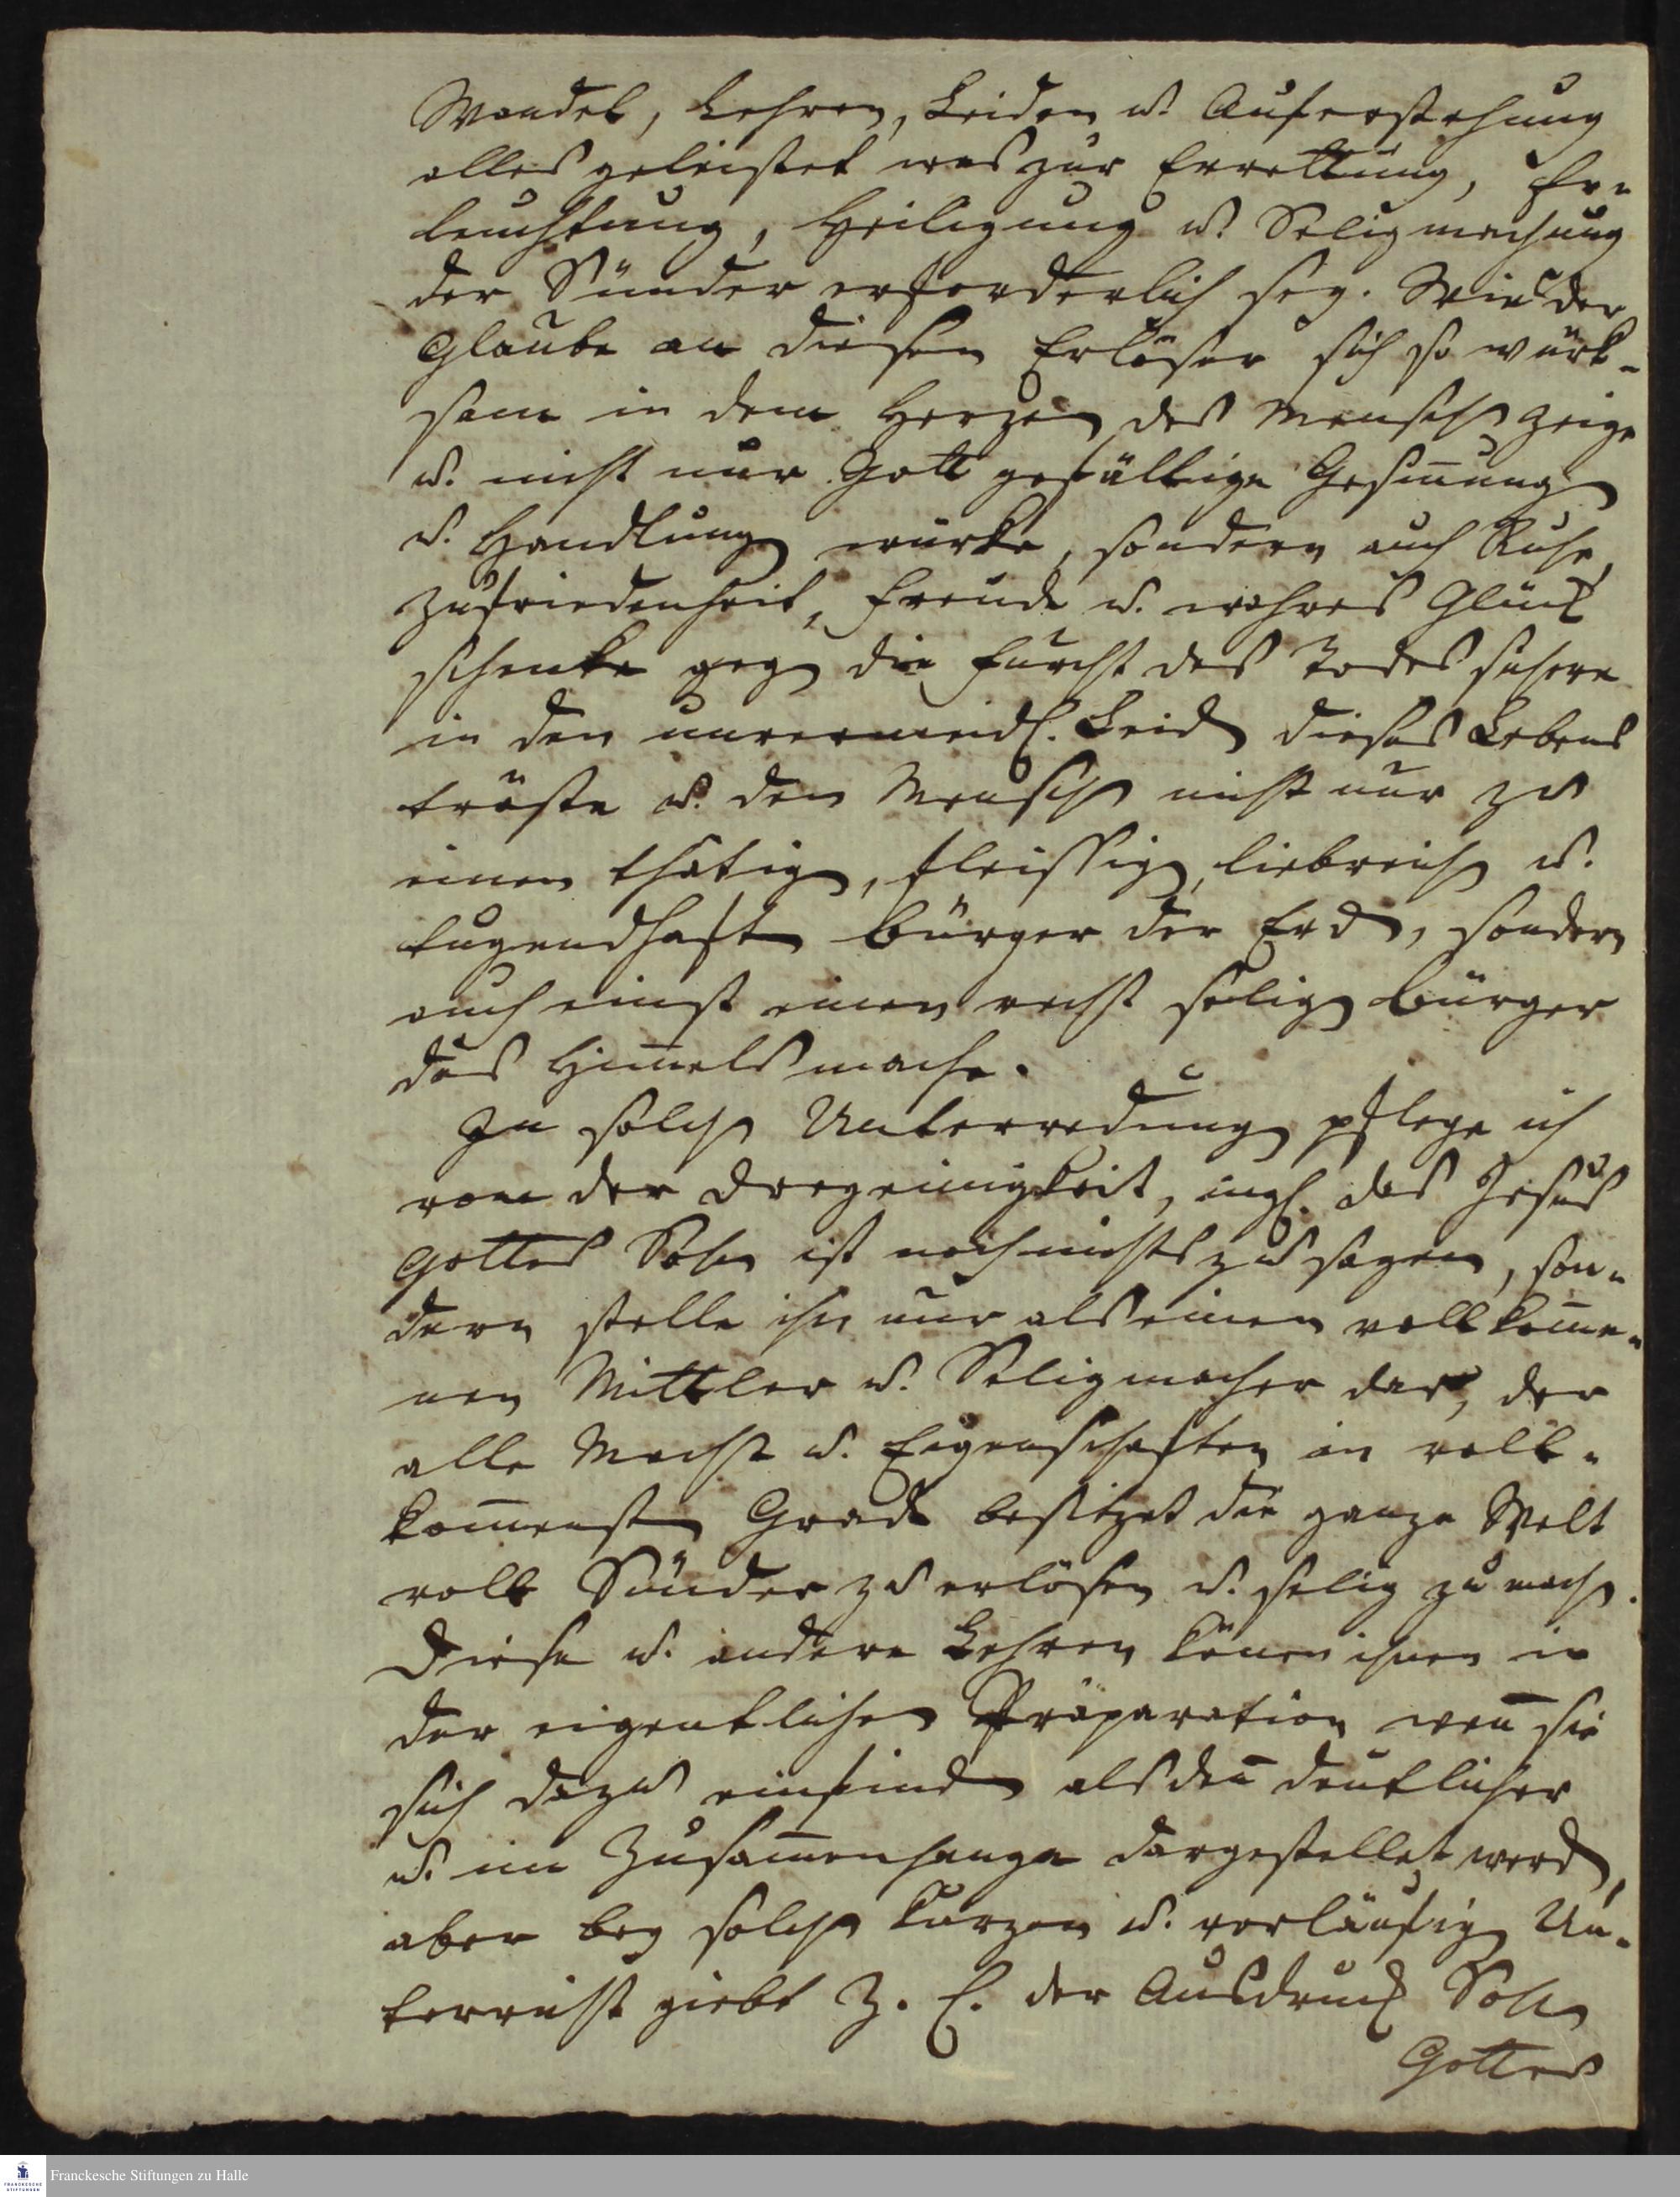 Wandel, Lehren, Leiden u. Auferstehung
alles geleistet was zur Errettung, Er-
leuchtung, Heiligung u. Seligmachung
der Sünder erforderlich sey. Wie der
Glaube an diesen Erlöser sich so würk-
sam in dem Herzen des Mensch zeige
u. nicht nur Gott gefällige Gesiñung
u. Handlung würke, sondern auch Ruhe,
Zufriedenheit, Freude u. wahres Glück
schenke geg die Furcht des Todes sichere
in den unvermeidl. Leid dieses Lebens
tröste u. den Mensch nicht nur zu
einen thätig, fleissig, liebreich u.
tugendhaft Bürger der Erd, sondern
auch einst einen recht selig Bürger
des Him̄els mache.
In solch Unterredung pflege ich
von der Dreyeinigkeit, ingl. das Jesus
Gottes Sohn ist noch nichts zu sagen, son-
dern stelle ihn nur als einen vollkom̄e-
nen Mittler u. Seligmacher dar, der
alle Macht u. Eigenschaften in voll-
kom̄enst Grade besitzet die ganze Welt
voll Sünder zu erlösen u. selig zu mach.
Diese u. andere Lehren köñen ihnen in
der eigentlichen Präparation weñ sie
sich dazu einfind alsdeñ deutlicher
u. im Zusam̄enhange dargestellet werd,
aber bey solch kurzen u. vorläufig Un-
terricht giebt z. E. der Ausdruck Sohn
Gottes
Franckesche Stiftungen zu Halle
FRANCKESCHE
STIFTUNGEN